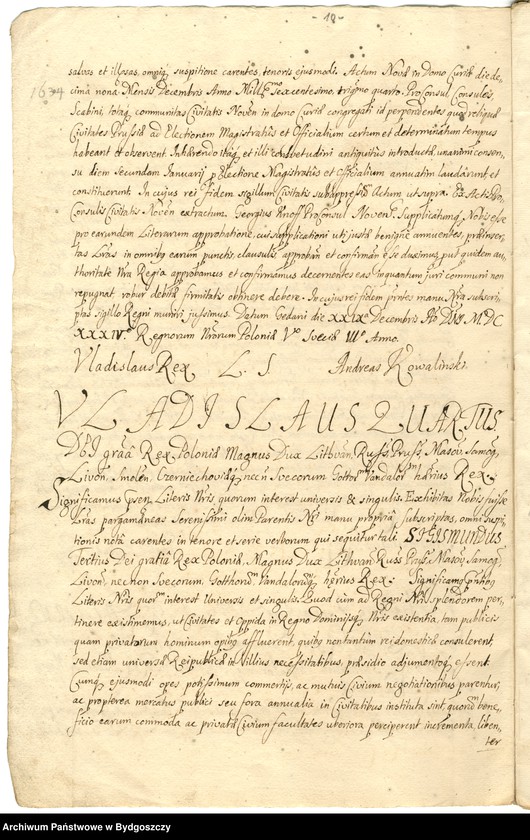 -18-
1634
salvas et illæsas, omniq suspitione carentes, tenoris ejusmodi. Actum Novæ in Domo Curiæ die de,
cima nona Mensis Decembris Anno Mill. sexcentesimo, trigmo quarto. ProConsul Consules,
Scabini, totaq communitas Civitatis Noven in domo Curiæ congregati id perpendentes quod reliquæ
Civitates Prussiæ ad Electionem Magistratus et Officialium certum et determinatum tempus
habeant et observent. Inhærendo itaq et illi consuetudini antiquitus introductæ, unanimi consen,
su diem Secundam Januarij p Electione Magistratus et Officialium annuatim laudarunt et
constituerunt. In cujus rei fidem sigillum Civitatis subappressu Actum ut supra. Ex Actis Pro
Consulis Civitatis Noven extractum. Georgius Knoff ProConsul Noven. Supplicatumq Nobis esse
pro earundem Literarum approbatione, cui supplicationi uti justæ benigne annuentes, præinser,
tas Lras in omnibq earum punctis, clausulis, approban et confirman esse duximus, put quidem au,
thoritate Nra Regia approbamus et confirmamus decernentes eas inquantum juri communi non
repugnat robur debitæ firmitatis obtinere debere. In cujus rei fidem prntes manu Nra subscri,
ptas sigillo Regni muniri jussimus. Datum Gedani die XXIX Decembris Ao Dni. M.DC
XXXIV. Regnorum Nrorum Poloniæ Vo Sveciæ IIIo Anno.
Vladislaus Rex L. S. Andreas Kowalinski.
VLADISLAUS QUARTUS
DEI grâa Rex Poloniæ Magnus Dux Lithvan, Russ, Pruss, Masov, Samog,
Livon, Smolen, Czerniechoviaq, necn Svecorum Gottor Vandalor hærius Rex.
Significamus Literis Nris quorum interest universis & singulis. Exhibitas Nobis fuisse
Lras pargamaneas Serenissimi olim Parentis Nri manu propria subscriptas, omni suspi,
tionis nota carentes in tenore et serie verborum qui sequitur tali. SIGISMUNDUS
Tertius Dei gratia Rex Poloniæ, Magnus Dux Lithvan Russ Pruss, Masov, Samog,
Livon, necnon Svecorum, Gotthorum, Vandalorumq hærius Rex. Significamq pntibq
Literis Nris quor interest Universis et singulis. Quod cum ad Regni Nri splendorem per,
tinere existimemus, ut Civitates et Oppida in Regno Dominijsq Nris existentia, tam publicis
quam privatorum hominum opibq affluerent, quibq non tantum rei domesticæ consulerent,
sed etiam universæ Reipublicæ in Illius necessitatibus præsidio adjumentoq essent.
Cumq ejusmodi opes potissimum commertijs, ac mutuis Civium negotiationibus parentur,
ac propterea mercatus publici seu fora annualia in Civitatibus instituta sint, quorum bene,
ficio earum commoda ac privatæ Civium facultates uberiora perciperent incrementa, liben,
ter
Archiwum Państwowe w Bydgoszczy